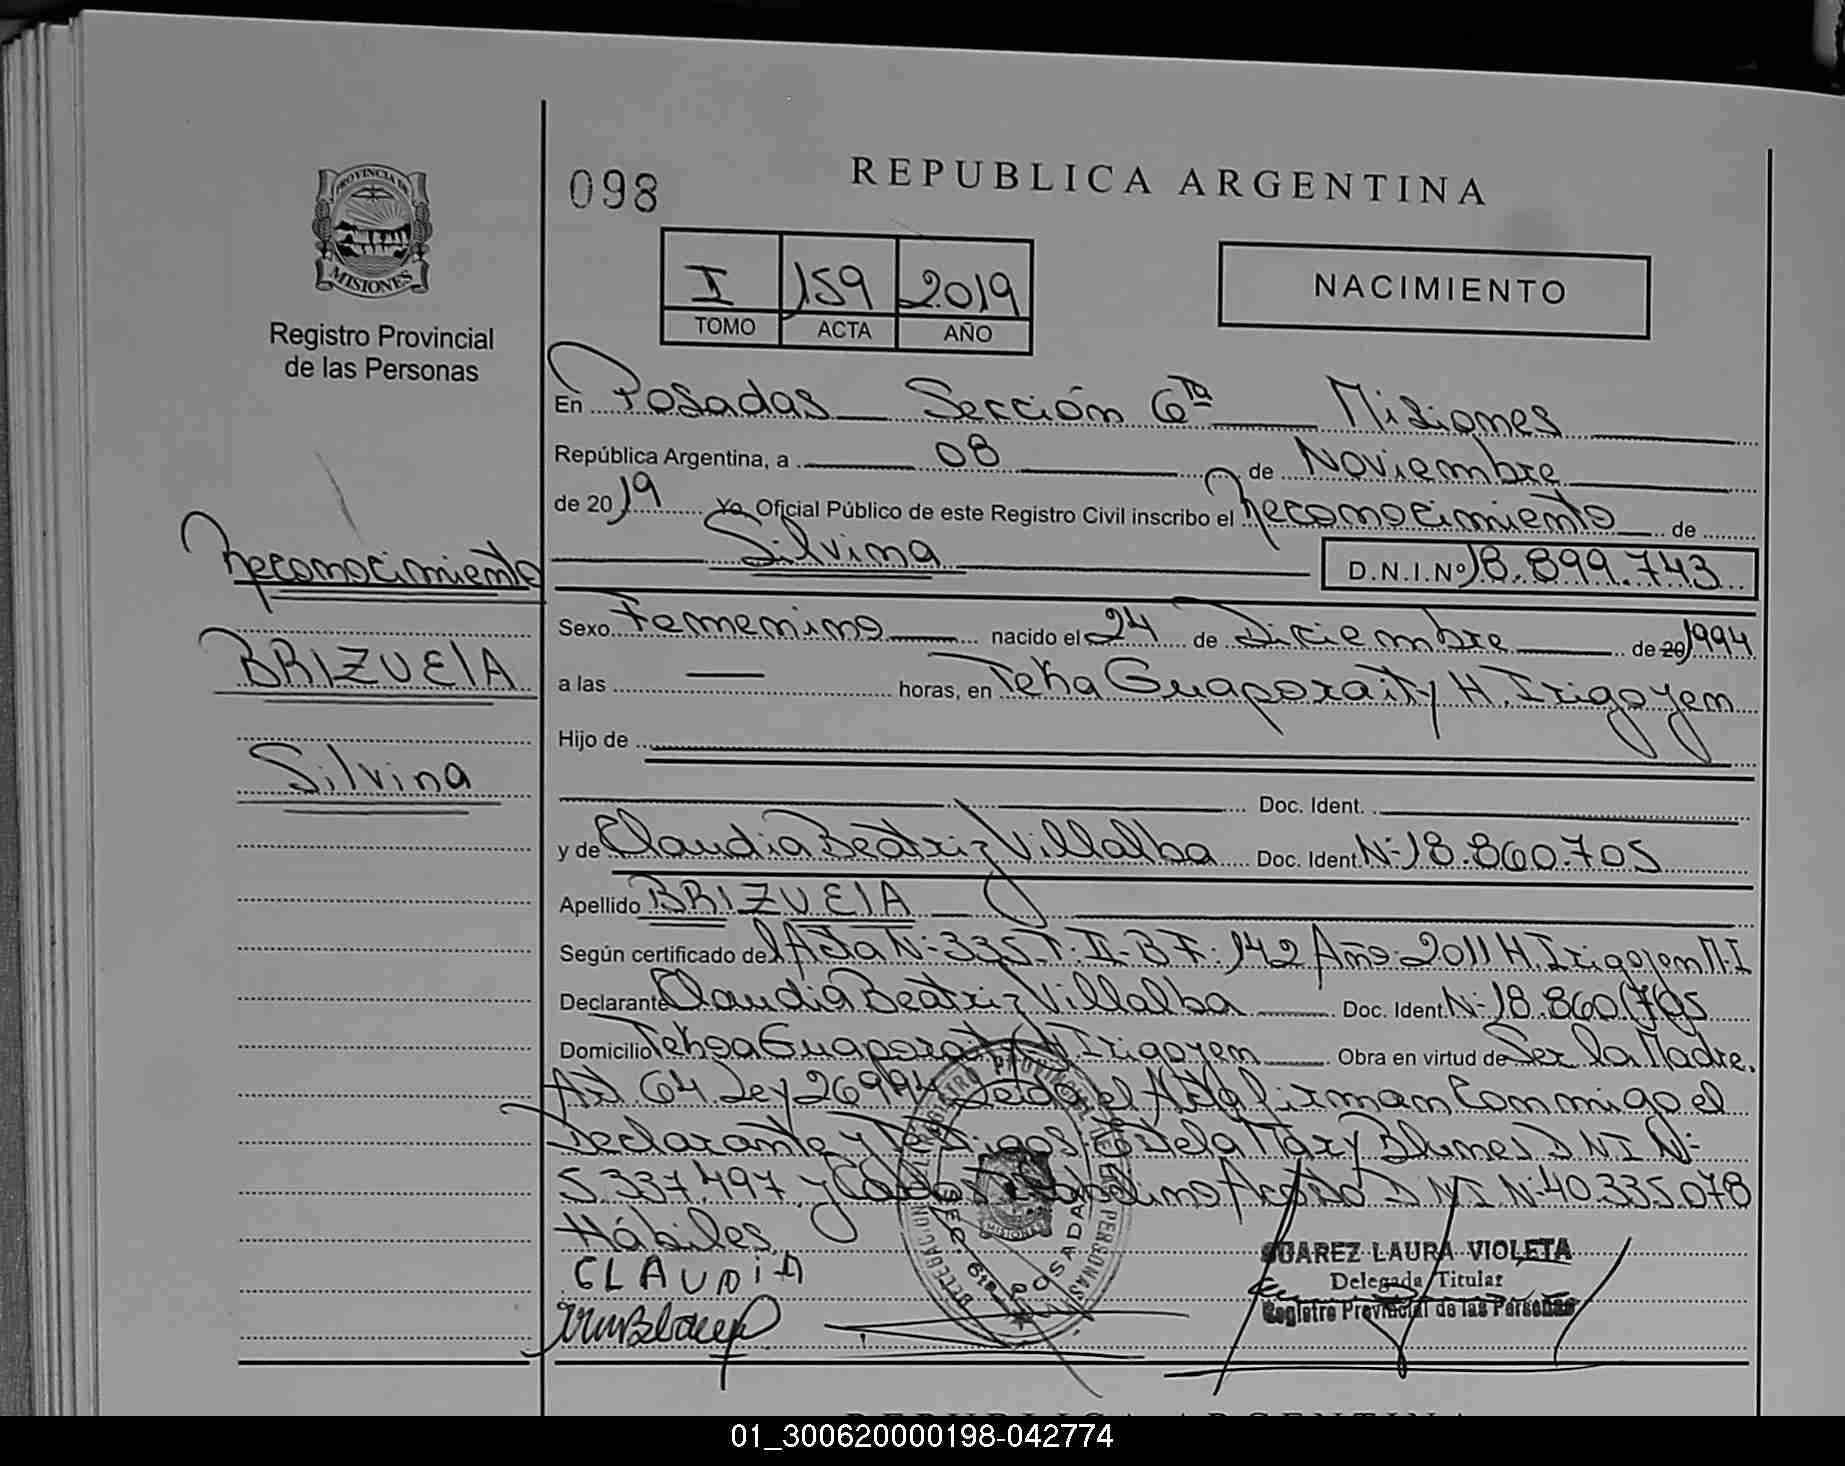 REPUBLICA ARGENTINA
098
PROVINCIA DE
MISIONES
Registro Provincial
de las Personas
I 159 2019
TOMO ACTA AÑO
NACIMIENTO
En Posadas Sección 6ta Misiones
República Argentina, a 08 de Noviembre
de 2019 Yo, Oficial Público de este Registro Civil inscribo el Reconocimiento de
Silvina D.N.I.Nº 18.899.743
Reconocimiento
BRIZUELA
Silvina
Sexo Femenino nacido el 24 de Diciembre de 20 1994
a las horas, en Teko Guaporaity H. Irigoyen
Hijo de
Doc. Ident.
y de Claudia Beatriz Villalba Doc. Ident. Nº 18.860.705
Apellido BRIZUELA
Según certificado del Acta Nº 335 T. II B F. 142 Año 2011 H. Irigoyen M.I
Declarante Claudia Beatriz Villalba Doc. Ident. Nº 18.860.705
Domicilio Guaporaity H. Irigoyen Obra en virtud de Ser la Madre.
Art 64 Ley 26994 Leida el Acta firman Conmigo el
Declarante y Testigos Mary Blumes D N I Nº
5.337.497 y Acosta D N I Nº 40.335.078
Hábiles
CLAUDIA
REGISTRO PROVINCIAL DE LAS PERSONAS
DELEGACION
SEC. 6ta POSADAS
SUAREZ LAURA VIOLETA
Delegada Titular
Registro Provincial de las Personas
REPUBLICA ARGENTINA
01_300620000198-042774